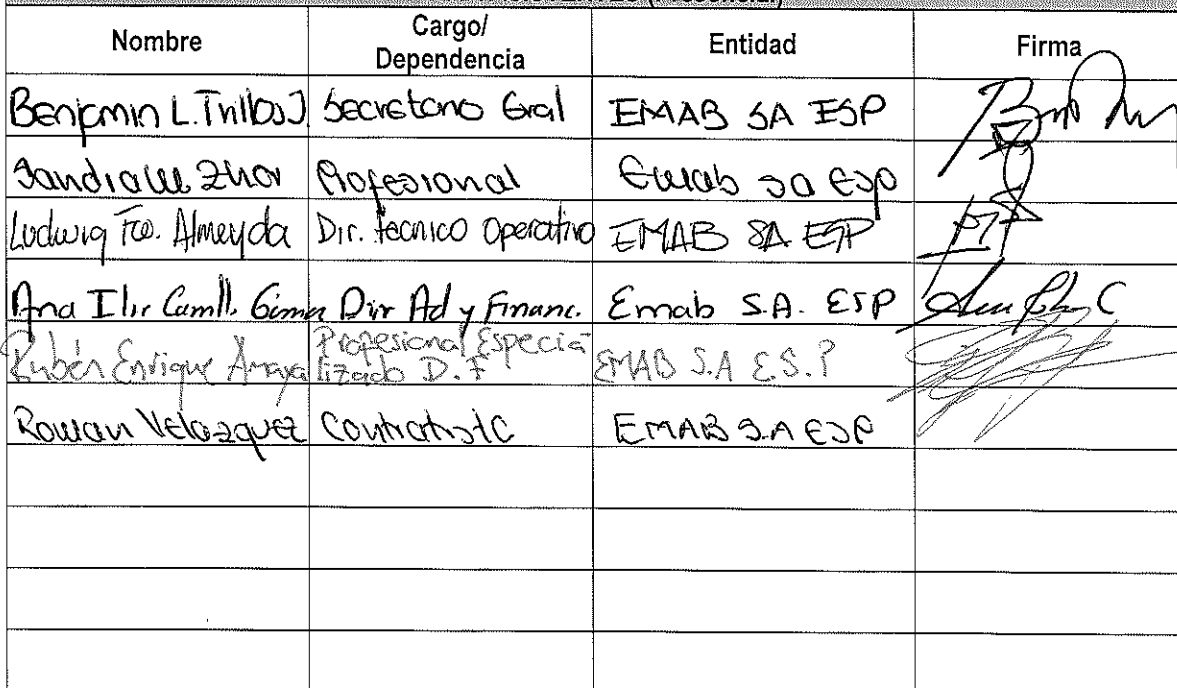 (Presencial)
Nombre Cargo/ Dependencia Entidad Firma
Benjamin L. Trillos J. Secretario Gral EMAB SA ESP
Profesional Emab sa esp
Ludwig Fco. Almeyda Dir. tecnico Operativo EMAB SA ESP
Ana Ilir Camll. Dir Ad y Financ. Emab S.A. ESP
Rubén Enrique Amaya Profesional Especializado D.F EMAB S.A E.S.P
Velazquez Contratista EMAB S.A ESP